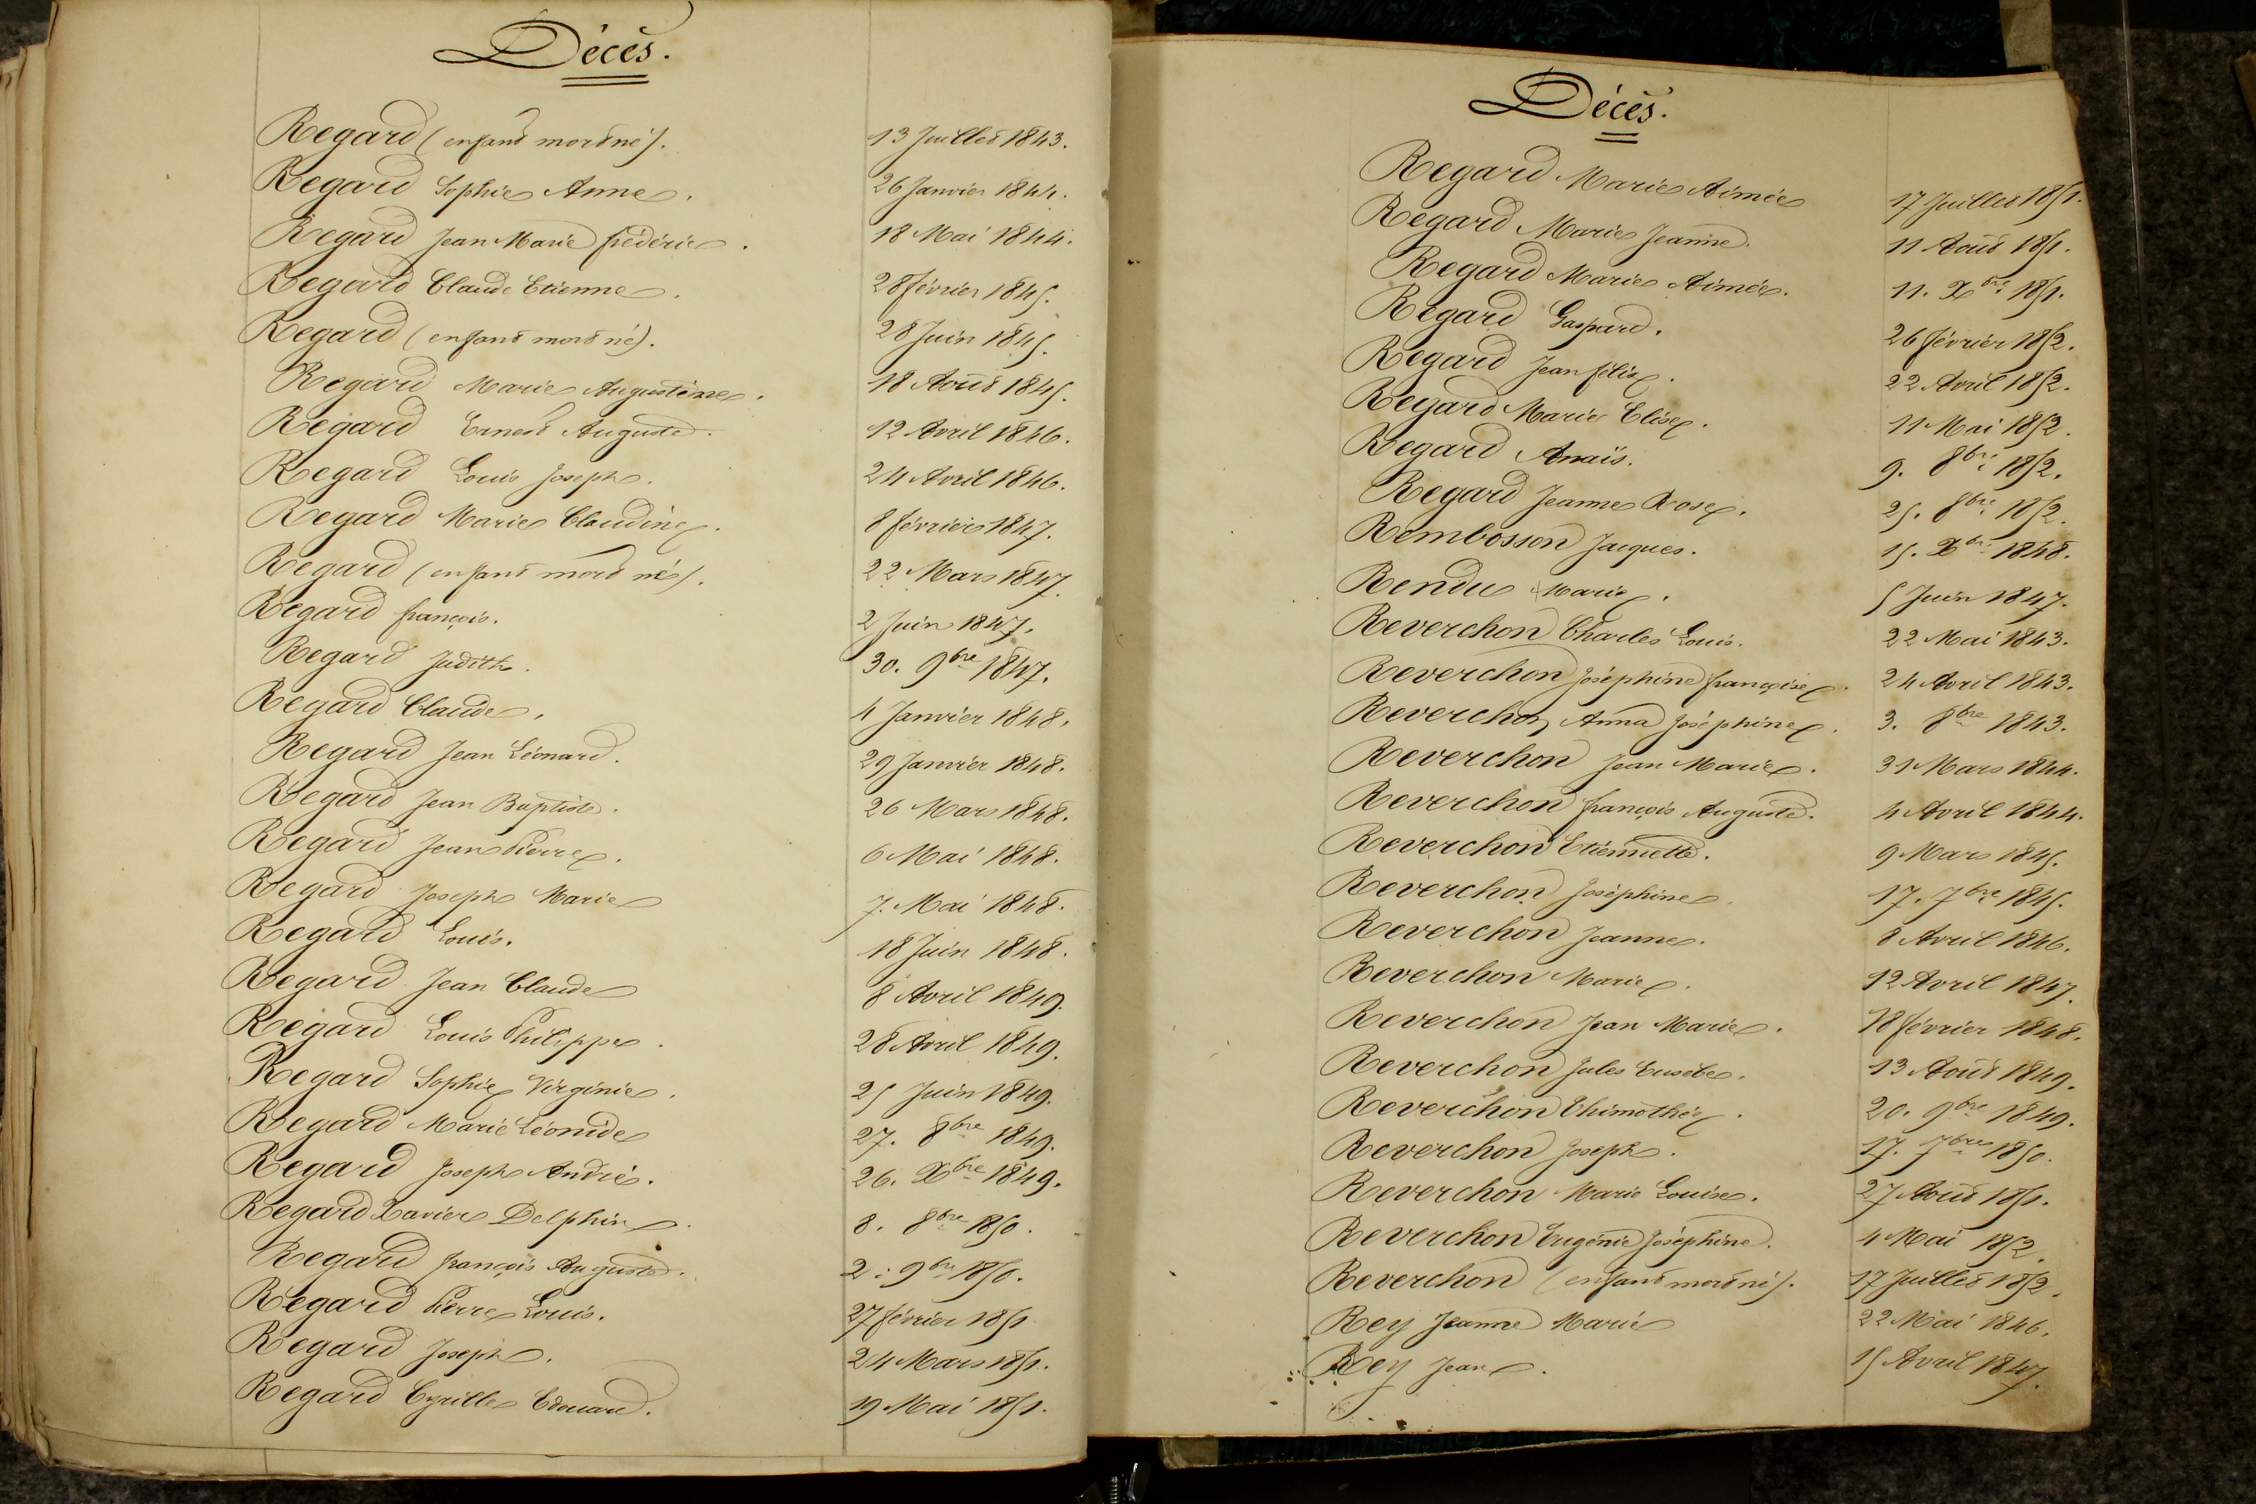 Décès.
Regard (enfant mort né). 13 Juillet 1843.
Regard Sophie Anne. 26 Janvier 1844.
Regard Jean Marie frédéric. 18 Mai 1844.
Regard Claude Etienne. 28 février 1845.
Regard (enfant mort né). 28 Juin 1845.
Regard Marie Augustine. 18 Août 1845.
Regard Ernest Auguste. 12 Avril 1846.
Regard Louis Joseph. 24 Avril 1846.
Regard Marie Claudine. 8 février 1847.
Regard (enfant mort né). 22 Mars 1847.
Regard françois. 2 Juin 1847.
Regard Judith. 30. 9bre 1847.
Regard Claude. 4 Janvier 1848.
Regard Jean Léonard. 29 Janvier 1848.
Regard Jean Baptiste. 26 Mars 1848.
Regard Jean Pierre. 6 Mai 1848.
Regard Joseph Marie 7. Mai 1848.
Regard Louis. 18 Juin 1848.
Regard Jean Claude 8 Avril 1849.
Regard Louis Philippe. 28 Avril 1849.
Regard Sophie Virginie. 25 Juin 1849.
Regard Marie Léonide 27. 8bre 1849.
Regard Joseph André. 26. Xbre 1849.
Regard Xavier Delphin. 8. 8bre 1850.
Regard françois Auguste. 2. 9bre 1850.
Regard Pierre Louis. 27 février 1851
Regard Joseph. 24 Mars 1851.
Regard Cyrille Edouard. 19 Mai 1851.
Décès.
Regard Marie Aimée 17 Juillet 1851.
Regard Marie Jeanne. 11 Août 1851.
Regard Marie Aimée. 11. Xbre 1851.
Regard Gaspard. 26 février 1852.
Regard Jean félix. 22 Avril 1852.
Regard Marie Elise. 11 Mai 1852.
Regard Anaïs. 9. 8bre 1852.
Regard Jeanne Rose. 25. 8bre 1852.
Rembosson Jacques. 15. Xbre 1848.
Rendu Marie. 5 Juin 1847.
Reverchon Charles Louis. 22 Mai 1843.
Reverchon Joséphine françoise. 24 Avril 1843.
Reverchon Anna Joséphine. 3. 8bre 1843.
Reverchon Jean Marie. 31 Mars 1844.
Reverchon françois Auguste. 4 Avril 1844.
Reverchon Etiennette. 9 Mars 1845.
Reverchon Joséphine. 17. 7bre 1845.
Reverchon Jeanne. 8 Avril 1846.
Reverchon Marie. 12 Avril 1847.
Reverchon Jean Marie. 18 février 1848.
Reverchon Jules Eusèbe. 13 Août 1849.
Reverchon Thimothée. 20. 9bre 1849.
Reverchon Joseph. 17. 7bre 1850.
Reverchon Marie Louise. 27 Août 1851.
Reverchon Eugénie Joséphine. 4 Mai 1852.
Reverchon (enfant mort né). 17 Juillet 1852.
Rey Jeanne Marie 22 Mai 1846.
Rey Jean. 15 Avril 1847.